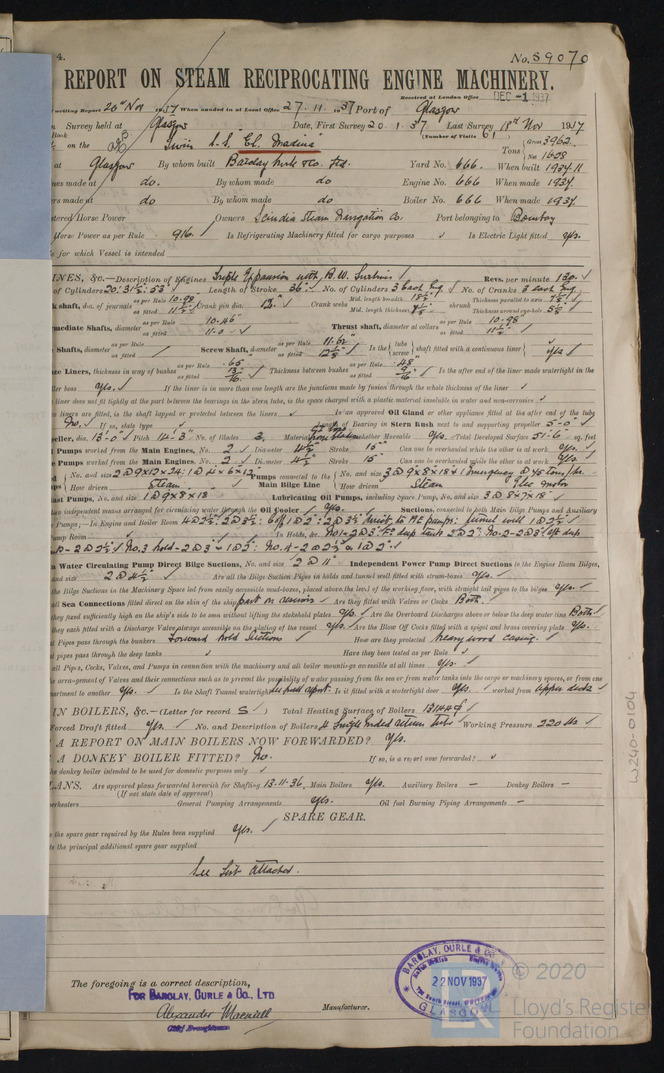 4. No. 59070
REPORT ON STEAM RECIPROCATING ENGINE MACHINERY.
Received at London Office DEC -1 1937
writing Report 26th Nov 1937 When handed in at Local Office 27.11.1937 Port of Glasgow
Survey held at Glasgow Date, First Survey 20.1.37 Last Survey 18th Nov 1937
(Number of Visits 61)
on the Twin S.S. "El Madina" Tons Gross 3962
Net 1608
at Glasgow By whom built Barclay Curle & Co. Ltd. Yard No. 666. When built 1937.11
made at do. By whom made do Engine No. 666 When made 1937.
made at do By whom made do Boiler No. 666 When made 1937.
Horse Power Owners Scindia Steam Navigation Co. Port belonging to Bombay
Horse Power as per Rule 916. Is Refrigerating Machinery fitted for cargo purposes Is Electric Light fitted yes.
for which Vessel is intended
INES, &c.—Description of Engines Triple Expansion with B.W. Turbine Revs. per minute 130.
of Cylinders 20": 31½": 53" Length of Stroke 36" No. of Cylinders 3 each Eng. No. of Cranks 3 each Eng.
shaft, dia. of journals as per Rule 10.98 as fitted 11½" Crank pin dia. 12" Crank webs Mid. length breadth 18½" Mid. length thickness shrunk Thickness parallel to axis Thickness around eye-hole
mediate Shafts, diameter as per Rule 10.46 as fitted 11.0 Thrust shaft, diameter at collars as per Rule 10.98 as fitted 11½"
Shafts, diameter as per Rule as fitted Screw Shaft, diameter as per Rule 11.62 as fitted 12⅜ Is the tube screw shaft fitted with a continuous liner yes
Liners, thickness in way of bushes as per Rule .65 as fitted Thickness between bushes as per Rule .48 as fitted 9/16 Is the after end of the liner made watertight in the
boss Yes. If the liner is in more than one length are the junctions made by fusion through the whole length of the liner
liner does not fit tightly at the part between the bearings in the stern tube, is the space charged with a plastic material insoluble in water and non-corrosive
liners are fitted, is the shaft lapped or protected between the liners Is an approved Oil Gland or other appliance fitted at the after end of the tube
No. If so, state type Length of Bearing in Stern Bush next to and supporting propeller 5'-0"
peller, dia. 13'-0" Pitch 14'-3" No. of Blades 3, Material whether Moveable Yes. Total Developed Surface 51.6 sq. feet
Pumps worked from the Main Engines, No. 2 Diameter 4½" Stroke 15" Can one be overhauled while the other is at work Yes.
Pumps worked from the Main Engines, No. 2 Diameter 4½" Stroke 15" Can one be overhauled while the other is at work Yes.
No. and size 2 @ 9x12x24; 1 @ 4x6x12 Pumps connected to the Main Bilge Line No. and size 3 @ 9x8x18 & 1 Emergency @ 45 tons/hr.
How driven Steam How driven Steam Elec motor
ast Pumps, No. and size 1 @ 9x8x18 Lubricating Oil Pumps, including Spare Pump, No. and size 3 @ 8x7x18
independent means arranged for circulating water through the Oil Cooler Yes. Suctions, connected to both Main Bilge Pumps and Auxiliary
Pumps;—In Engine and Boiler Room
Pump Room In Holds, &c.
n Water Circulating Pump Direct Bilge Suctions, No. and size 2 @ 11" Independent Power Pump Direct Suctions to the Engine Room Bilges,
size 2 @ 4½" Are all the Bilge Suction Pipes in holds and tunnel well fitted with strum-boxes Yes.
the Bilge Suctions in the Machinery Space led from easily accessible mud-boxes, placed above the level of the working floor, with straight tail pipes to the bilges Yes.
all Sea Connections fitted direct on the skin of the ship Are they fitted with Valves or Cocks Both.
they fixed sufficiently high on the ship's side to be seen without lifting the stokehold plates Yes. Are the Overboard Discharges above or below the deep water line Both
they each fitted with a Discharge Valve always accessible on the plating of the vessel Yes. Are the Blow Off Cocks fitted with a spigot and brass covering plate Yes.
Pipes pass through the bunkers Forward hold Suctions How are they protected heavy wood casing.
pipes pass through the deep tanks Have they been tested as per Rule
all Pipes, Cocks, Valves, and Pumps in connection with the machinery and all boiler mountings accessible at all times Yes.
the arrangement of Valves and their connections such as to prevent the possibility of water passing from the sea or from water tanks into the cargo or machinery spaces, or from one
partment to another Yes. Is the Shaft Tunnel watertight Is it fitted with a watertight door Yes. worked from Upper deck
IN BOILERS, &c.—(Letter for record S) Total Heating Surface of Boilers
Forced Draft fitted Yes. No. and Description of Boilers Working Pressure 220 lbs
A REPORT ON MAIN BOILERS NOW FORWARDED? Yes.
A DONKEY BOILER FITTED? No. If so, is a report now forwarded?
the donkey boiler intended to be used for domestic purposes only
LANS. Are approved plans forwarded herewith for Shafting 13.11.36. Main Boilers Yes. Auxiliary Boilers — Donkey Boilers —
(If not state date of approval)
erheaters General Pumping Arrangements Yes. Oil fuel Burning Piping Arrangements —
SPARE GEAR.
the spare gear required by the Rules been supplied Yes.
the principal additional spare gear supplied
See List Attached.
W240-0104
The foregoing is a correct description,
FOR BARCLAY, CURLE & CO., LTD
Alexander Macneill Manufacturer.
Chief Draughtsman
BARCLAY, CURLE & CO.
22 NOV 1937
GLASGOW
© 2020
Lloyd's Register
Foundation
LR